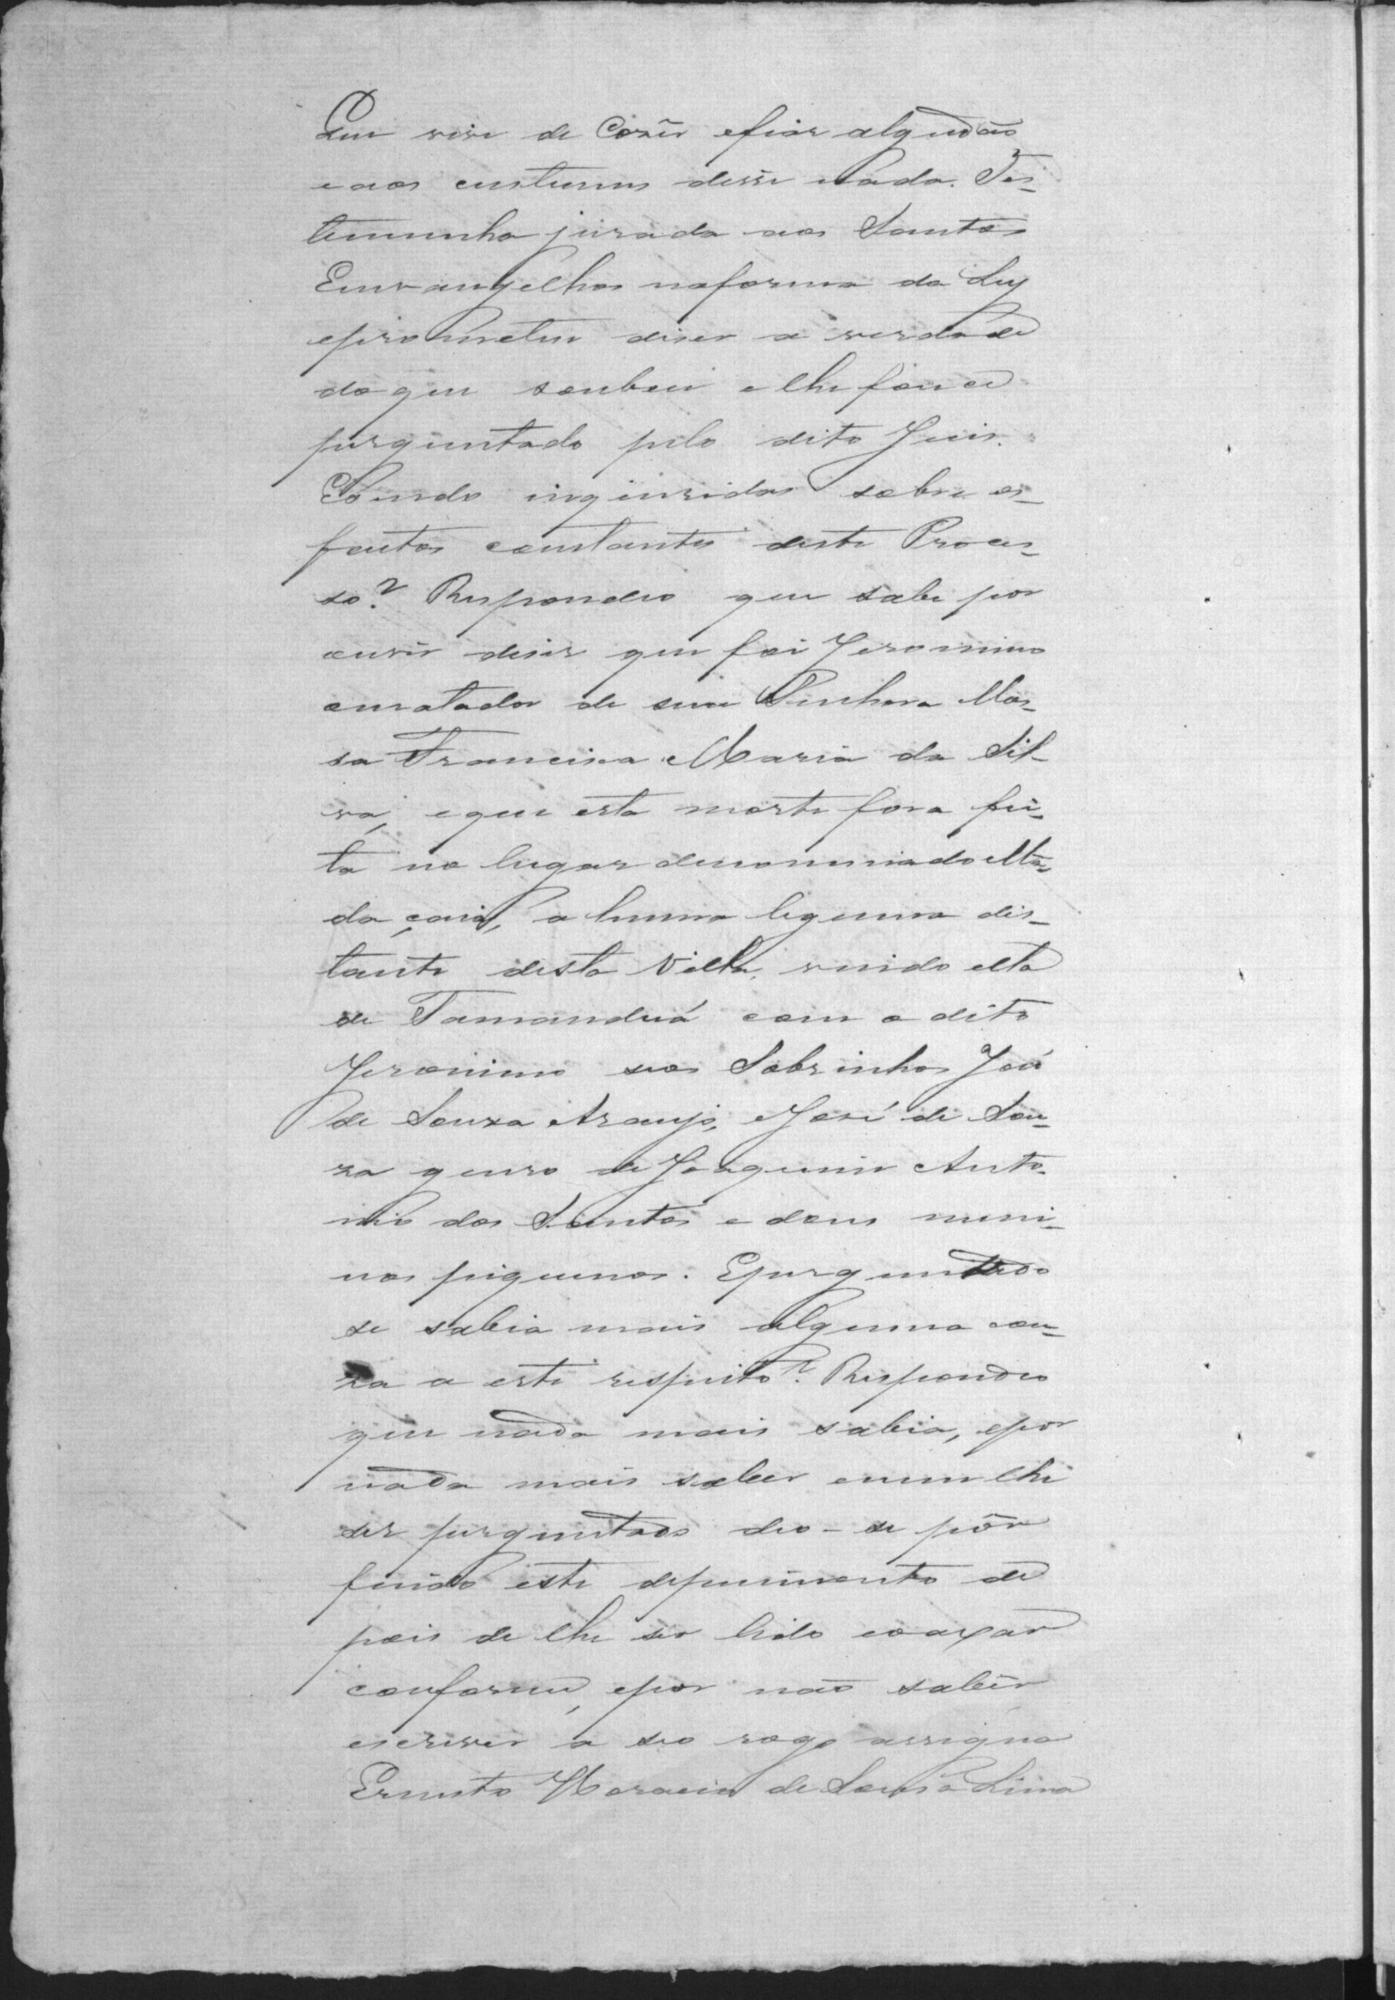 Que vive de Cozer efiar algudão
e aos custumes disse nada. Tes-
temunha jurada aos Santos
Envangelhos naforma da Ley
eprometeu diser a verdade
doque soubeci e lhe fouce
purguntado pelo dito Juis.
Sendo inqueridas sobre os
fautos constantes deste Proces-
so? Respondeo que sabe por
ouvir diser que foi Jeronimo
omatador de sua Senhora Mo-
sa Francisca Maria da Sil-
va, eque esta morte fora fei-
ta no lugar denominado Mta
da a huma legoua dis-
tante desta Villa, vindo ella
de Tamanduá com o dito
Jeronimo seos Sobrinhos José
de Souza Araujo, eJosé de Sou-
za genro de Joaquim Anto-
nio dos Santos e dous mini-
nos piquenos. Epurguntado
se sabia mais alguma cou-
za a este respeito? Respondeo
que nada mais sabia, epor
nada mais saber enemlhe
ser purguntado deo-se pôr
findo este depuimento de
pois de lhe ser lido eoaxar
conforme, epor não saber
escrever a seo rogo assigna
Ernesto Horacio de Sousa Lima